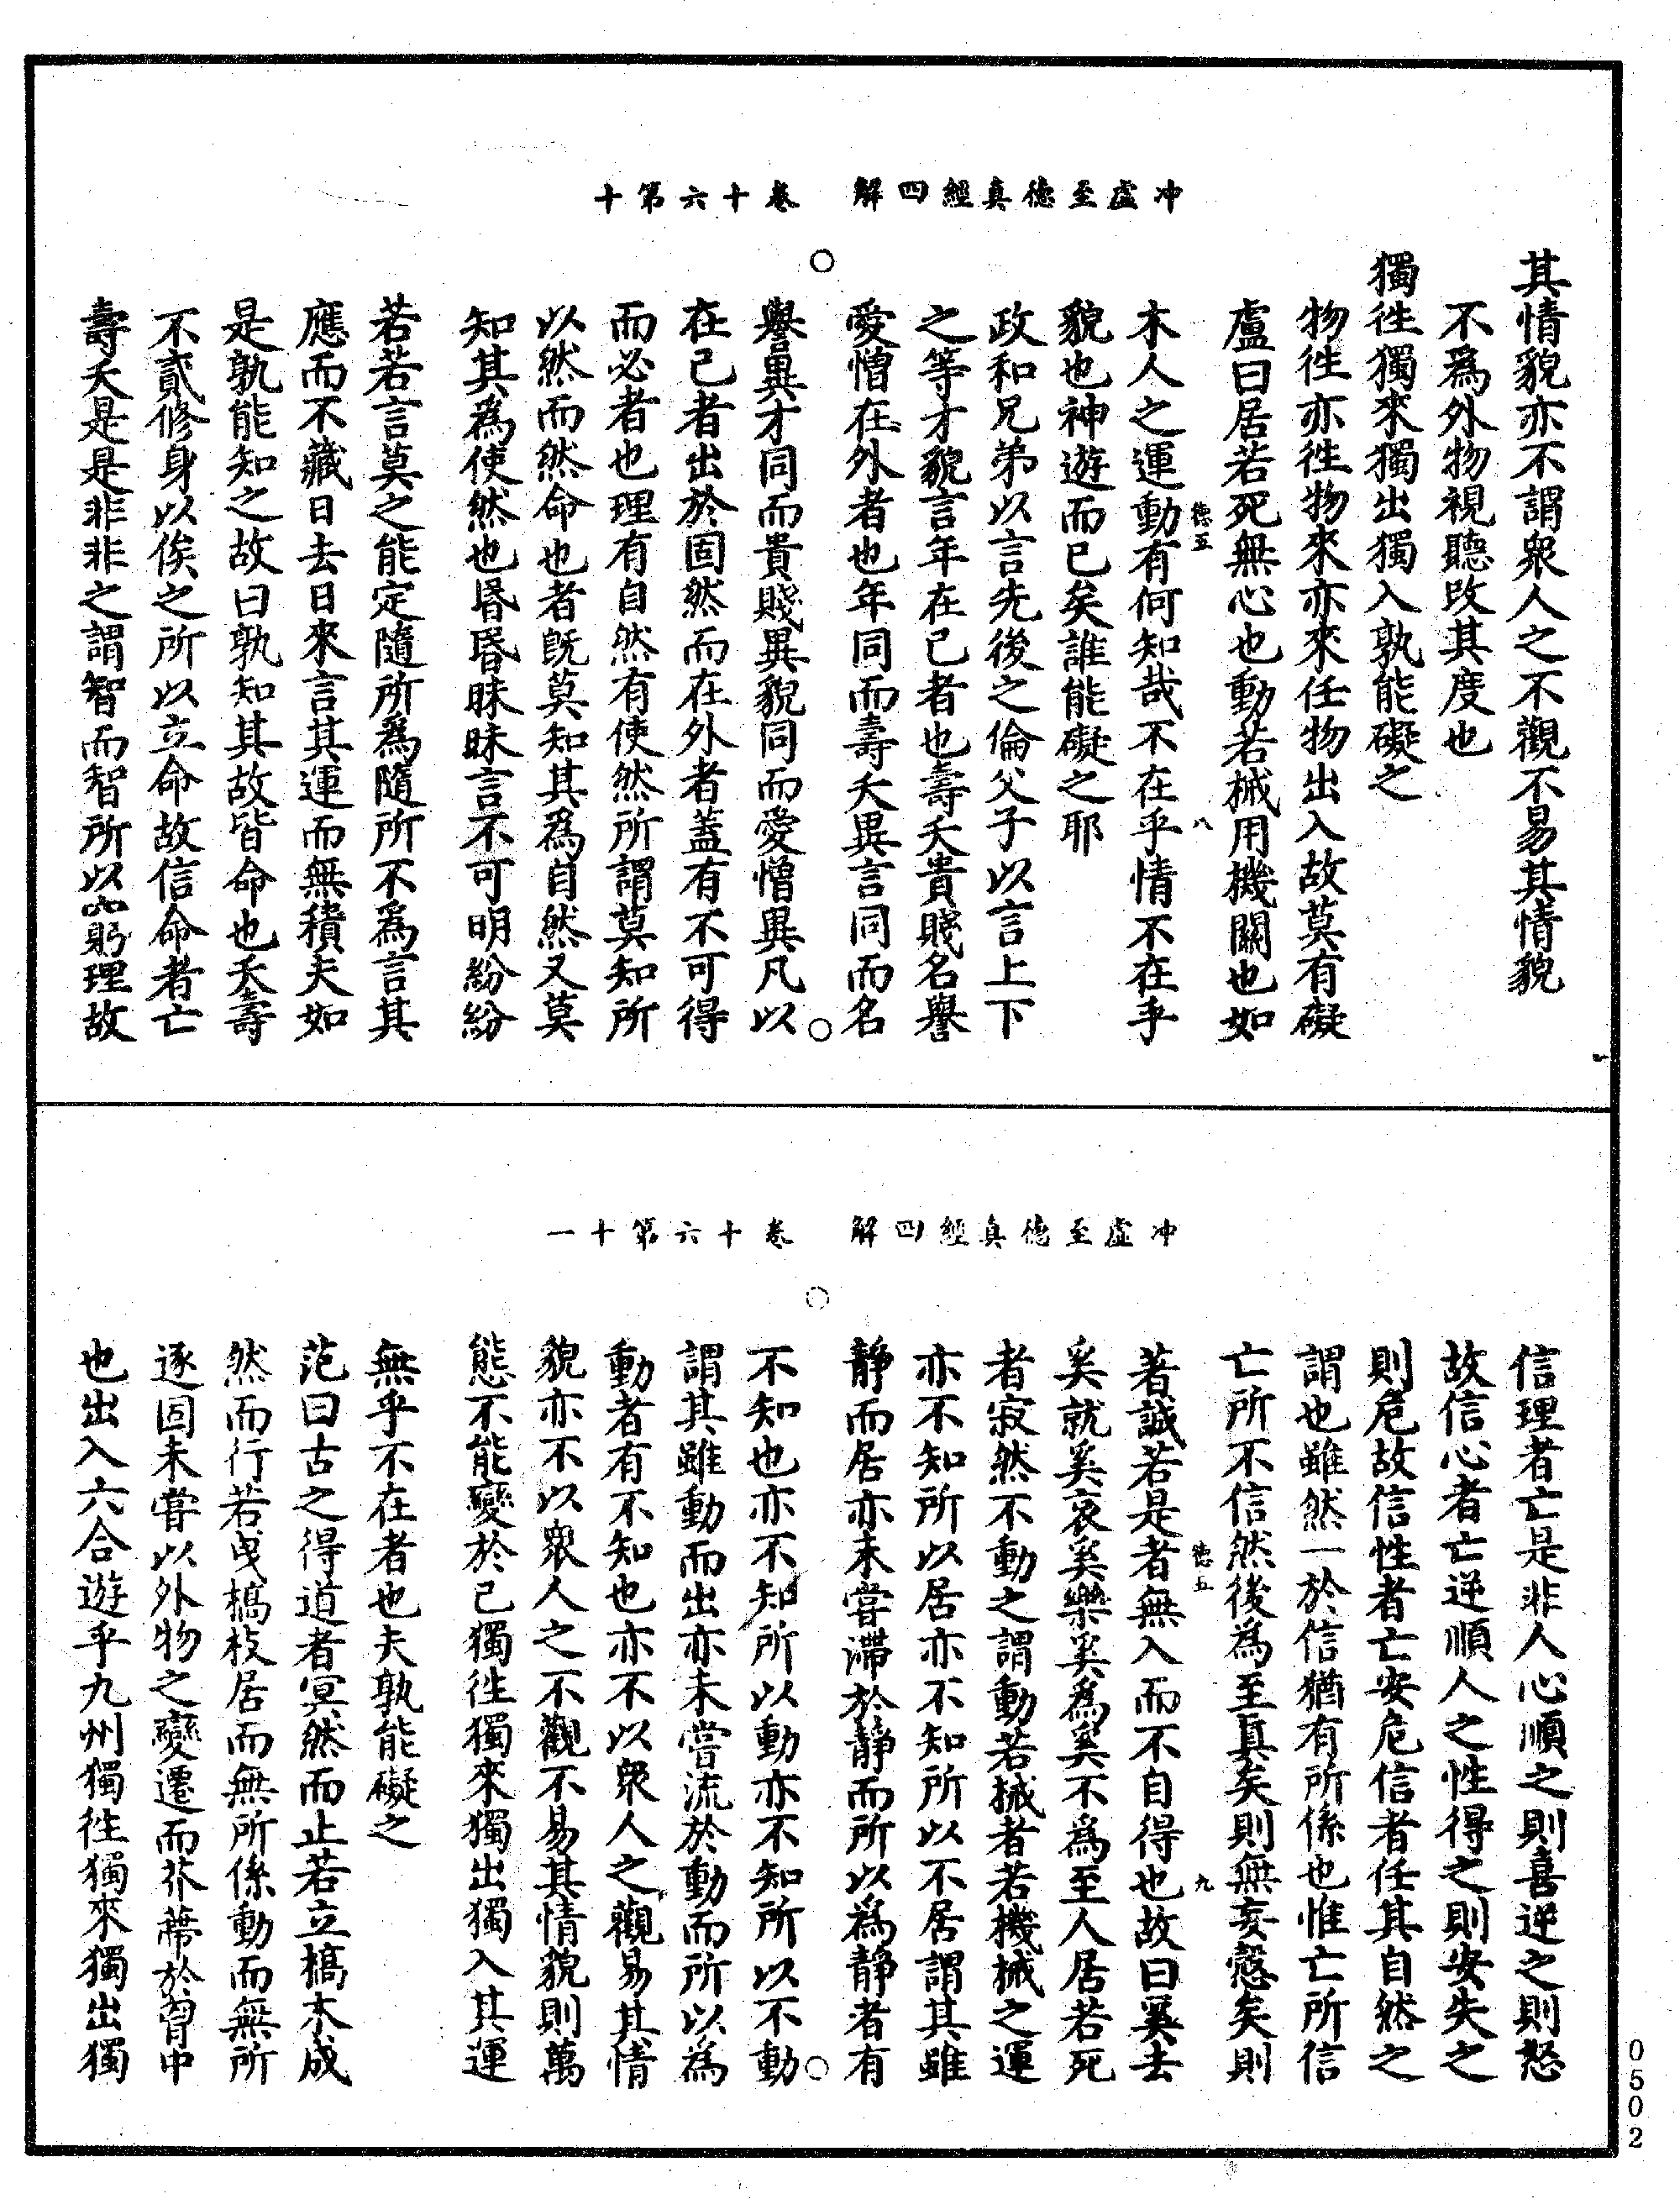 冲虛至德真經四解　卷十六第十
其情貌亦不謂衆人之不觀不易其情貌
不爲外物視聽改其度也
獨徃獨來獨出獨入孰能礙之
物徃亦徃物來亦來任物出入故莫有礙
盧曰居若死無心也動若械用機關也如
德五　八
木人之運動有何知哉不在乎情不在乎
貌也神遊而已矣誰能礙之耶
政和兄弟以言先後之倫父子以言上下
之等才貌言年在己者也壽夭貴賤名譽
愛憎在外者也年同而壽夭異言同而名
譽異才同而貴賤異貌同而愛憎異凡以
在己者出於固然而在外者蓋有不可得
而必者也理有自然有使然所謂莫知所
以然而然命也者旣莫知其爲自然又莫
知其爲使然也昬昬昧昧言不可明紛紛
若若言莫之能定隨所爲隨所不爲言其
應而不藏日去日來言其運而無積夫如
是孰能知之故曰孰知其故皆命也夭壽
不貳修身以俟之所以立命故信命者亡
壽夭是是非非之謂智而智所以窮理故
冲虛至德真經四解　卷十六第十一
信理者亡是非人心順之則喜逆之則怒
故信心者亡逆順人之性得之則安失之
則危故信性者亡安危信者任其自然之
謂也雖然一於信猶有所係也惟亡所信
亡所不信然後爲至真矣則無妄慤矣則
德五　九
著誠若是者無入而不自得也故曰奚去
奚就奚哀奚樂奚爲奚不爲至人居若死
者寂然不動之謂動若械者若機械之運
亦不知所以居亦不知所以不居謂其雖
靜而居亦未嘗滯於靜而所以爲靜者有
不知也亦不知所以動亦不知所以不動
謂其雖動而出亦未嘗流於動而所以爲
動者有不知也亦不以衆人之觀易其情
貌亦不以衆人之不觀不易其情貌則萬
態不能變於己獨徃獨來獨出獨入其運
無乎不在者也夫孰能礙之
范曰古之得道者㝠然而止若立槁木成
然而行若曳槁枝居而無所係動而無所
逐固未嘗以外物之變遷而芥蔕於胷中
也出入六合遊乎九州獨徃獨來獨出獨
0502